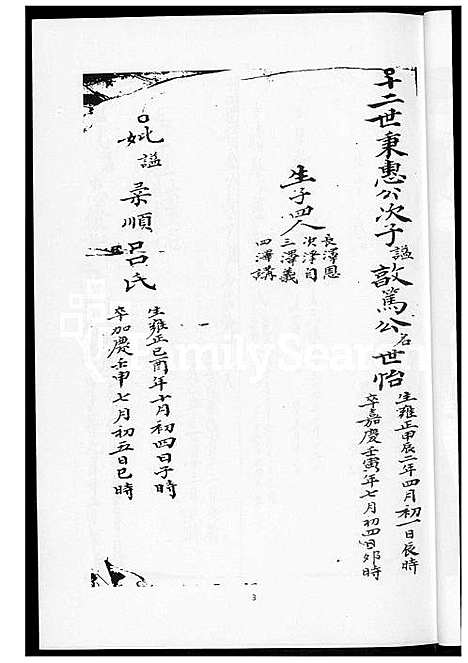 十二世秉惠公次子諡敦篤公名世怡
生雍正甲辰二年四月初一日辰時
卒嘉慶壬寅年七月初四日卯時
生子四人
長澤恩
次澤
三澤義
四澤講
妣諡柔順呂氏
生雍正己酉年十月初四日子時
卒加慶壬申七月初五日巳時
FamilySearch
3